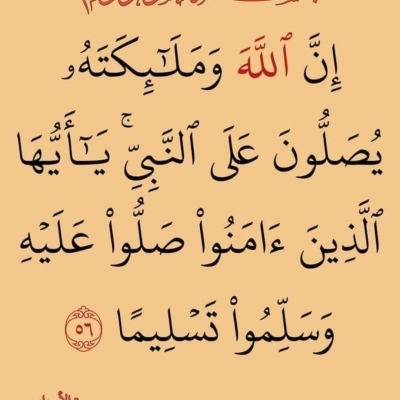 إِنَّ ٱللَّهَ وَمَلَـٰٓئِكَتَهُۥ
يُصَلُّونَ عَلَى ٱلنَّبِىِّ ۚ يَـٰٓأَيُّهَا
ٱلَّذِينَ ءَامَنُوا۟ صَلُّوا۟ عَلَيْهِ
وَسَلِّمُوا۟ تَسْلِيمًا ٥٦